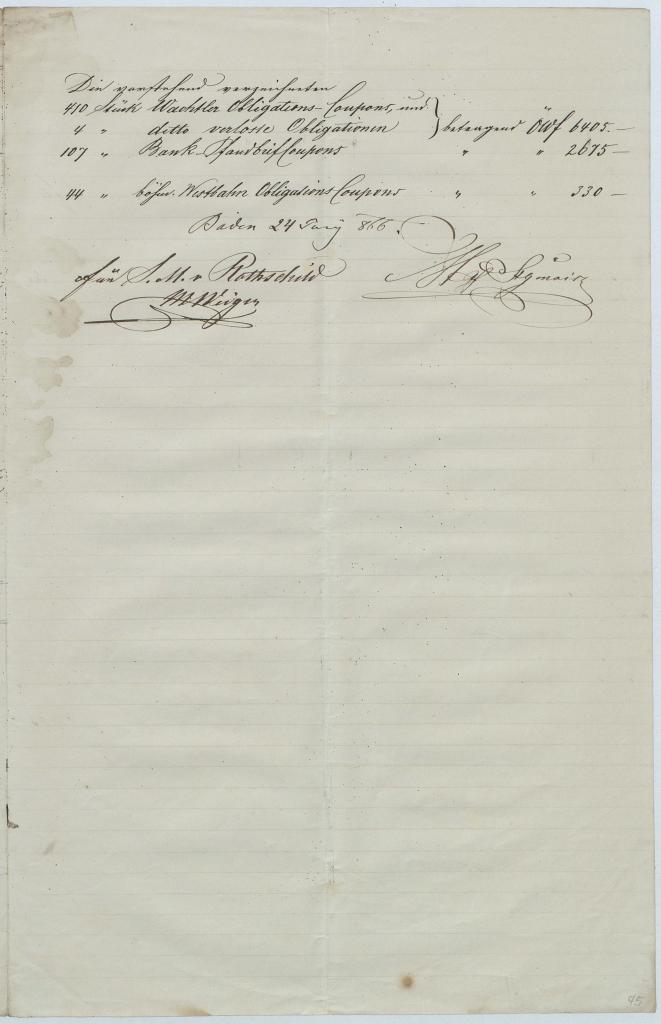 Die vorstehend verzeichneten
410 Stück Wachtler Obligations-Coupons, und
4 " ditto verloste Obligationen } betragend ÖWf 6405.—
107 " Bank Pfandbrief Coupons " " 2675 —
44 " böhm. Westbahn Obligations Coupons " " 330 —
Baden 24 Juny 866.
Für S. M. v Rothschild
45